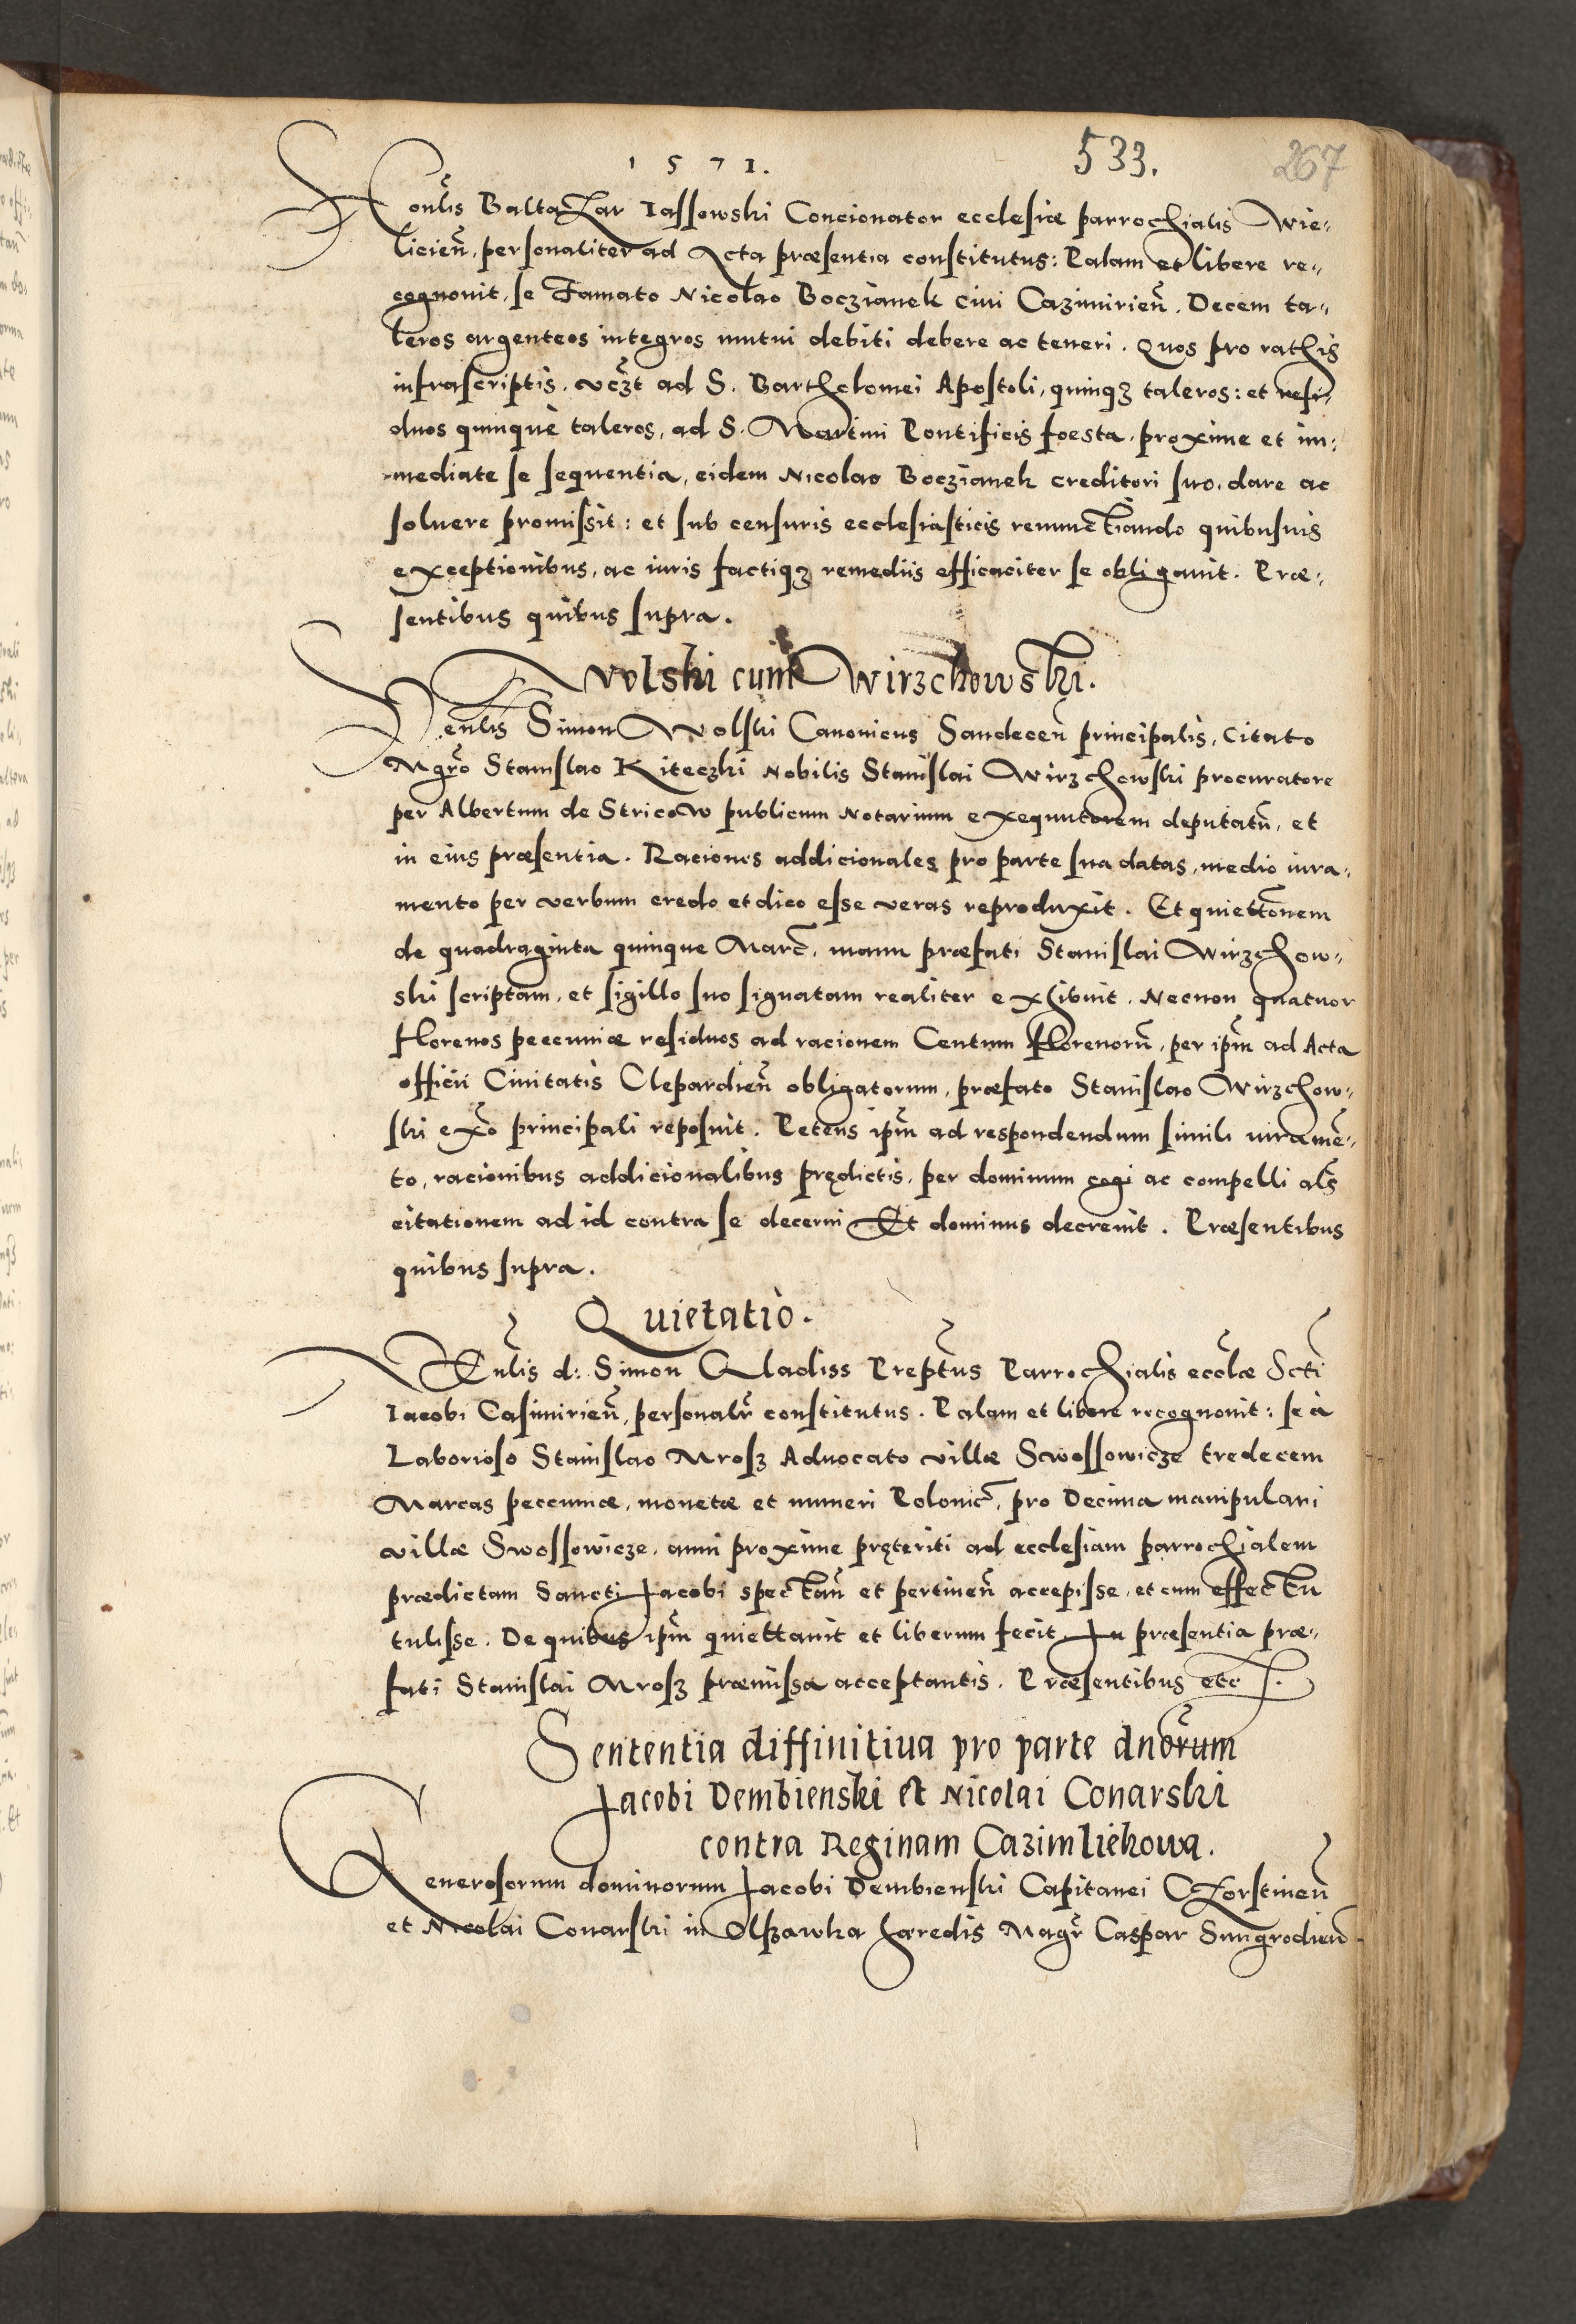 1571. 533. 267
Honlis Baltazar Iassowski Concionator ecclesiæ parrochialis Wie„
licien̄, personaliter ad Acta præsentia constitutus: Palam et libere re„
cognouit, se Famato Nicolao Boczianek ciui Cazimirien̄. Decem ta„
leros argenteos integros mutui debiti debere ac teneri. Quos pro rathis
infrascriptis. vczt ad S. Bartholomei Apostoli, quinqз taleros: et resi„
duos quinque taleros, ad S. Martini Pontificis foesta, proxime et im„
mediate se sequentia, eidem Nicolao Boczianek creditori suo, dare ac
soluere promissit: et sub censuris ecclesiasticis renunctiando quibusuis
exceptionibus, ac iuris factiqз remediis efficaciter se obligauit. Præ„
sentibus quibus supra.
Wolski cum Wirzchowski.
Venlis Simon Wolski Canonicus Sandecen̄ principalis, Citato
Mgr̄o Stanislao Kiteczki Nobilis Stanislai Wirzchowski procuratore
per Albertum de Stricow publicum Notarium exequutorem deputatū, et
in eius præsentia. Raciones addicionales pro parte sua datas, medio iura„
mento per verbum credo et dico esse veras reproduxit. Et quiettōnem
de quadraginta quinque Marc̄, manu præfati Stanislai Wirzchow„
ski scriptam, et sigillo suo signatam realiter exhibuit. Necnon quatuor
florenos peccuniæ residuos ad racionem Centum florenorū, per ipm̄ ad Acta
officii Ciuitatis Clepardien̄ obligatorum, præfato Stanislao Wirzchow„
ski ex̄o principali reposuit. Petens ipm̄ ad respondendum simili iuramē„
to, racionibus addicionalibus prędictis, per dominum cogi ac compelli als̄
citationem ad id contra se decerni Et dominus decreuit. Præsentibus
quibus supra.
Quietatio.
Venlis d: Simon Gladiss Prept̄us Parrochialis eccl̄æ Scti
Iacobi Casimirien̄, personalr̄ constitutus. Palam et libere recognouit: se a
Laborioso Stanislao Mrosz Aduocato villæ Swossowicze tredecem
Marcas peccuniæ, monetæ et numeri Polonic̄, pro Decima manipulari
villæ Swossowicze, anni proxime pręteriti ad ecclesiam parrochialem
prædictam Sancti Jacobi spectan̄ et pertinen̄ accepisse, et cum effectu
tulisse. De quibus ipm̄ quiettauit et liberum fecit. In præsentia præ„
fati Stanislai Mrosz præmissa acceptantis. Præsentibus etc.
Sententia diffinitiua pro parte dnōrum
Jacobi Dembienski et Nicolai Conarski
contra Reginam Cazimliekowa.
Generosorum dominorum Jacobi Dembienski Capitanei Czorstinen̄
et Nicolai Conarski in Olszawka hæredis Magr̄ Caspar Sungrodien̄